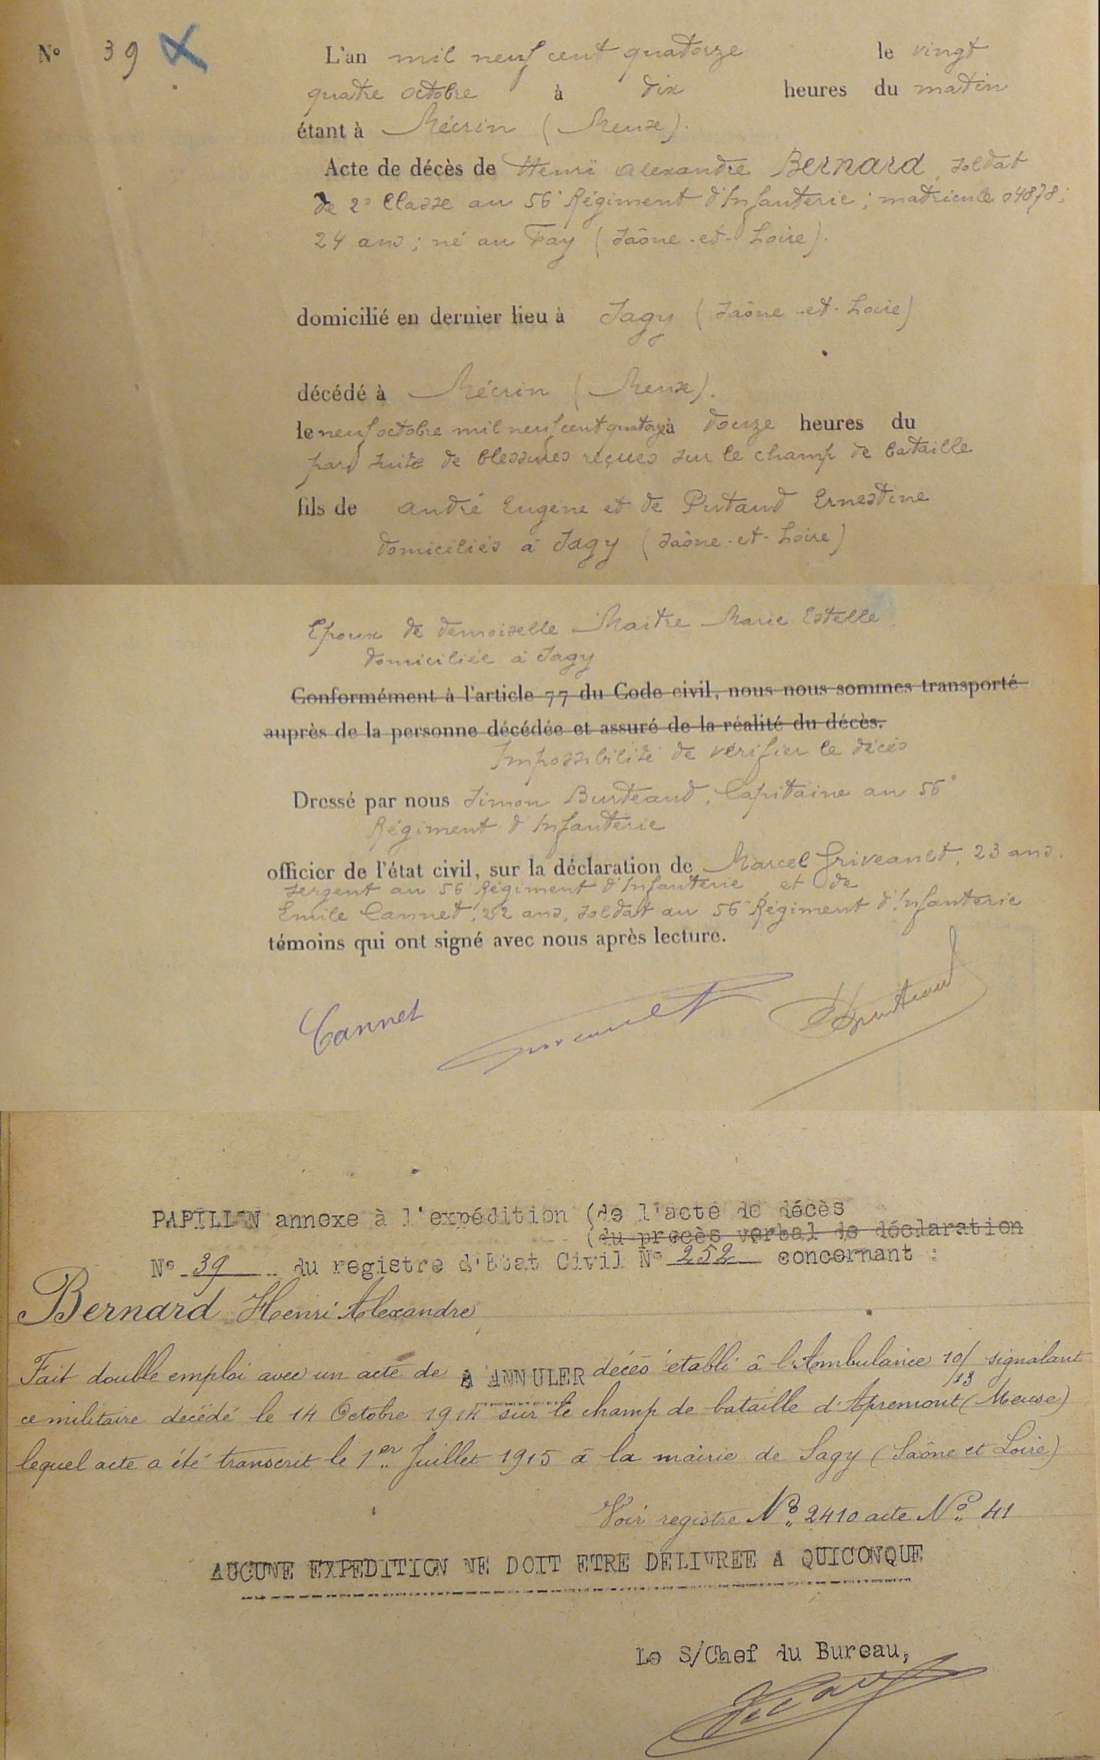 N° 39
L'an mil neuf cent quatorze le vingt
quatre octobre à dix heures du matin
étant à Mécrin (Meuse).
Acte de décès de Henri Alexandre Bernard, soldat
de 2e Classe au 56e Régiment d'Infanterie; matricule 04878;
24 ans; né au Fay (Saône-et-Loire).
domicilié en dernier lieu à Sagy (Saône-et-Loire)
décédé à Mécrin (Meuse).
le neuf octobre mil neuf cent quatorze à douze heures du
par suite de blessures reçues sur le champ de bataille
fils de André Eugène et de Putaud Ernestine
domiciliés à Sagy (Saône-et-Loire)
Epoux de demoiselle Maitre Marie Estelle
domiciliée à Sagy
Conformément à l'article 77 du Code civil, nous nous sommes transporté
auprès de la personne décédée et assuré de la réalité du décès.
Impossibilité de vérifier le décès
Dressé par nous Simon Burteaud, Capitaine au 56e
Régiment d'Infanterie
officier de l'état civil, sur la déclaration de Marcel Griveauet, 23 ans,
sergent au 56e Régiment d'Infanterie et de
Emile Cannet, 22 ans, soldat au 56e Régiment d'Infanterie
témoins qui ont signé avec nous après lecture.
Cannet
PAPILLON annexe à l'expédition (de l'acte de décès
(du procès verbal de déclaration
N° 39 du registre d'Etat Civil N° 252 concernant :
Bernard Henri Alexandre
Fait double emploi avec un acte de A ANNULER décès établi à l'Ambulance 10/13 signalant
ce militaire décédé le 14 Octobre 1914 sur le champ de bataille d'Apremont (Meuse)
lequel acte a été transcrit le 1er Juillet 1915 à la mairie de Sagy (Saône et Loire)
Voir registre N° 2410 acte N° 41
AUCUNE EXPEDITION NE DOIT ETRE DELIVREE A QUICONQUE
Le S/Chef du Bureau,